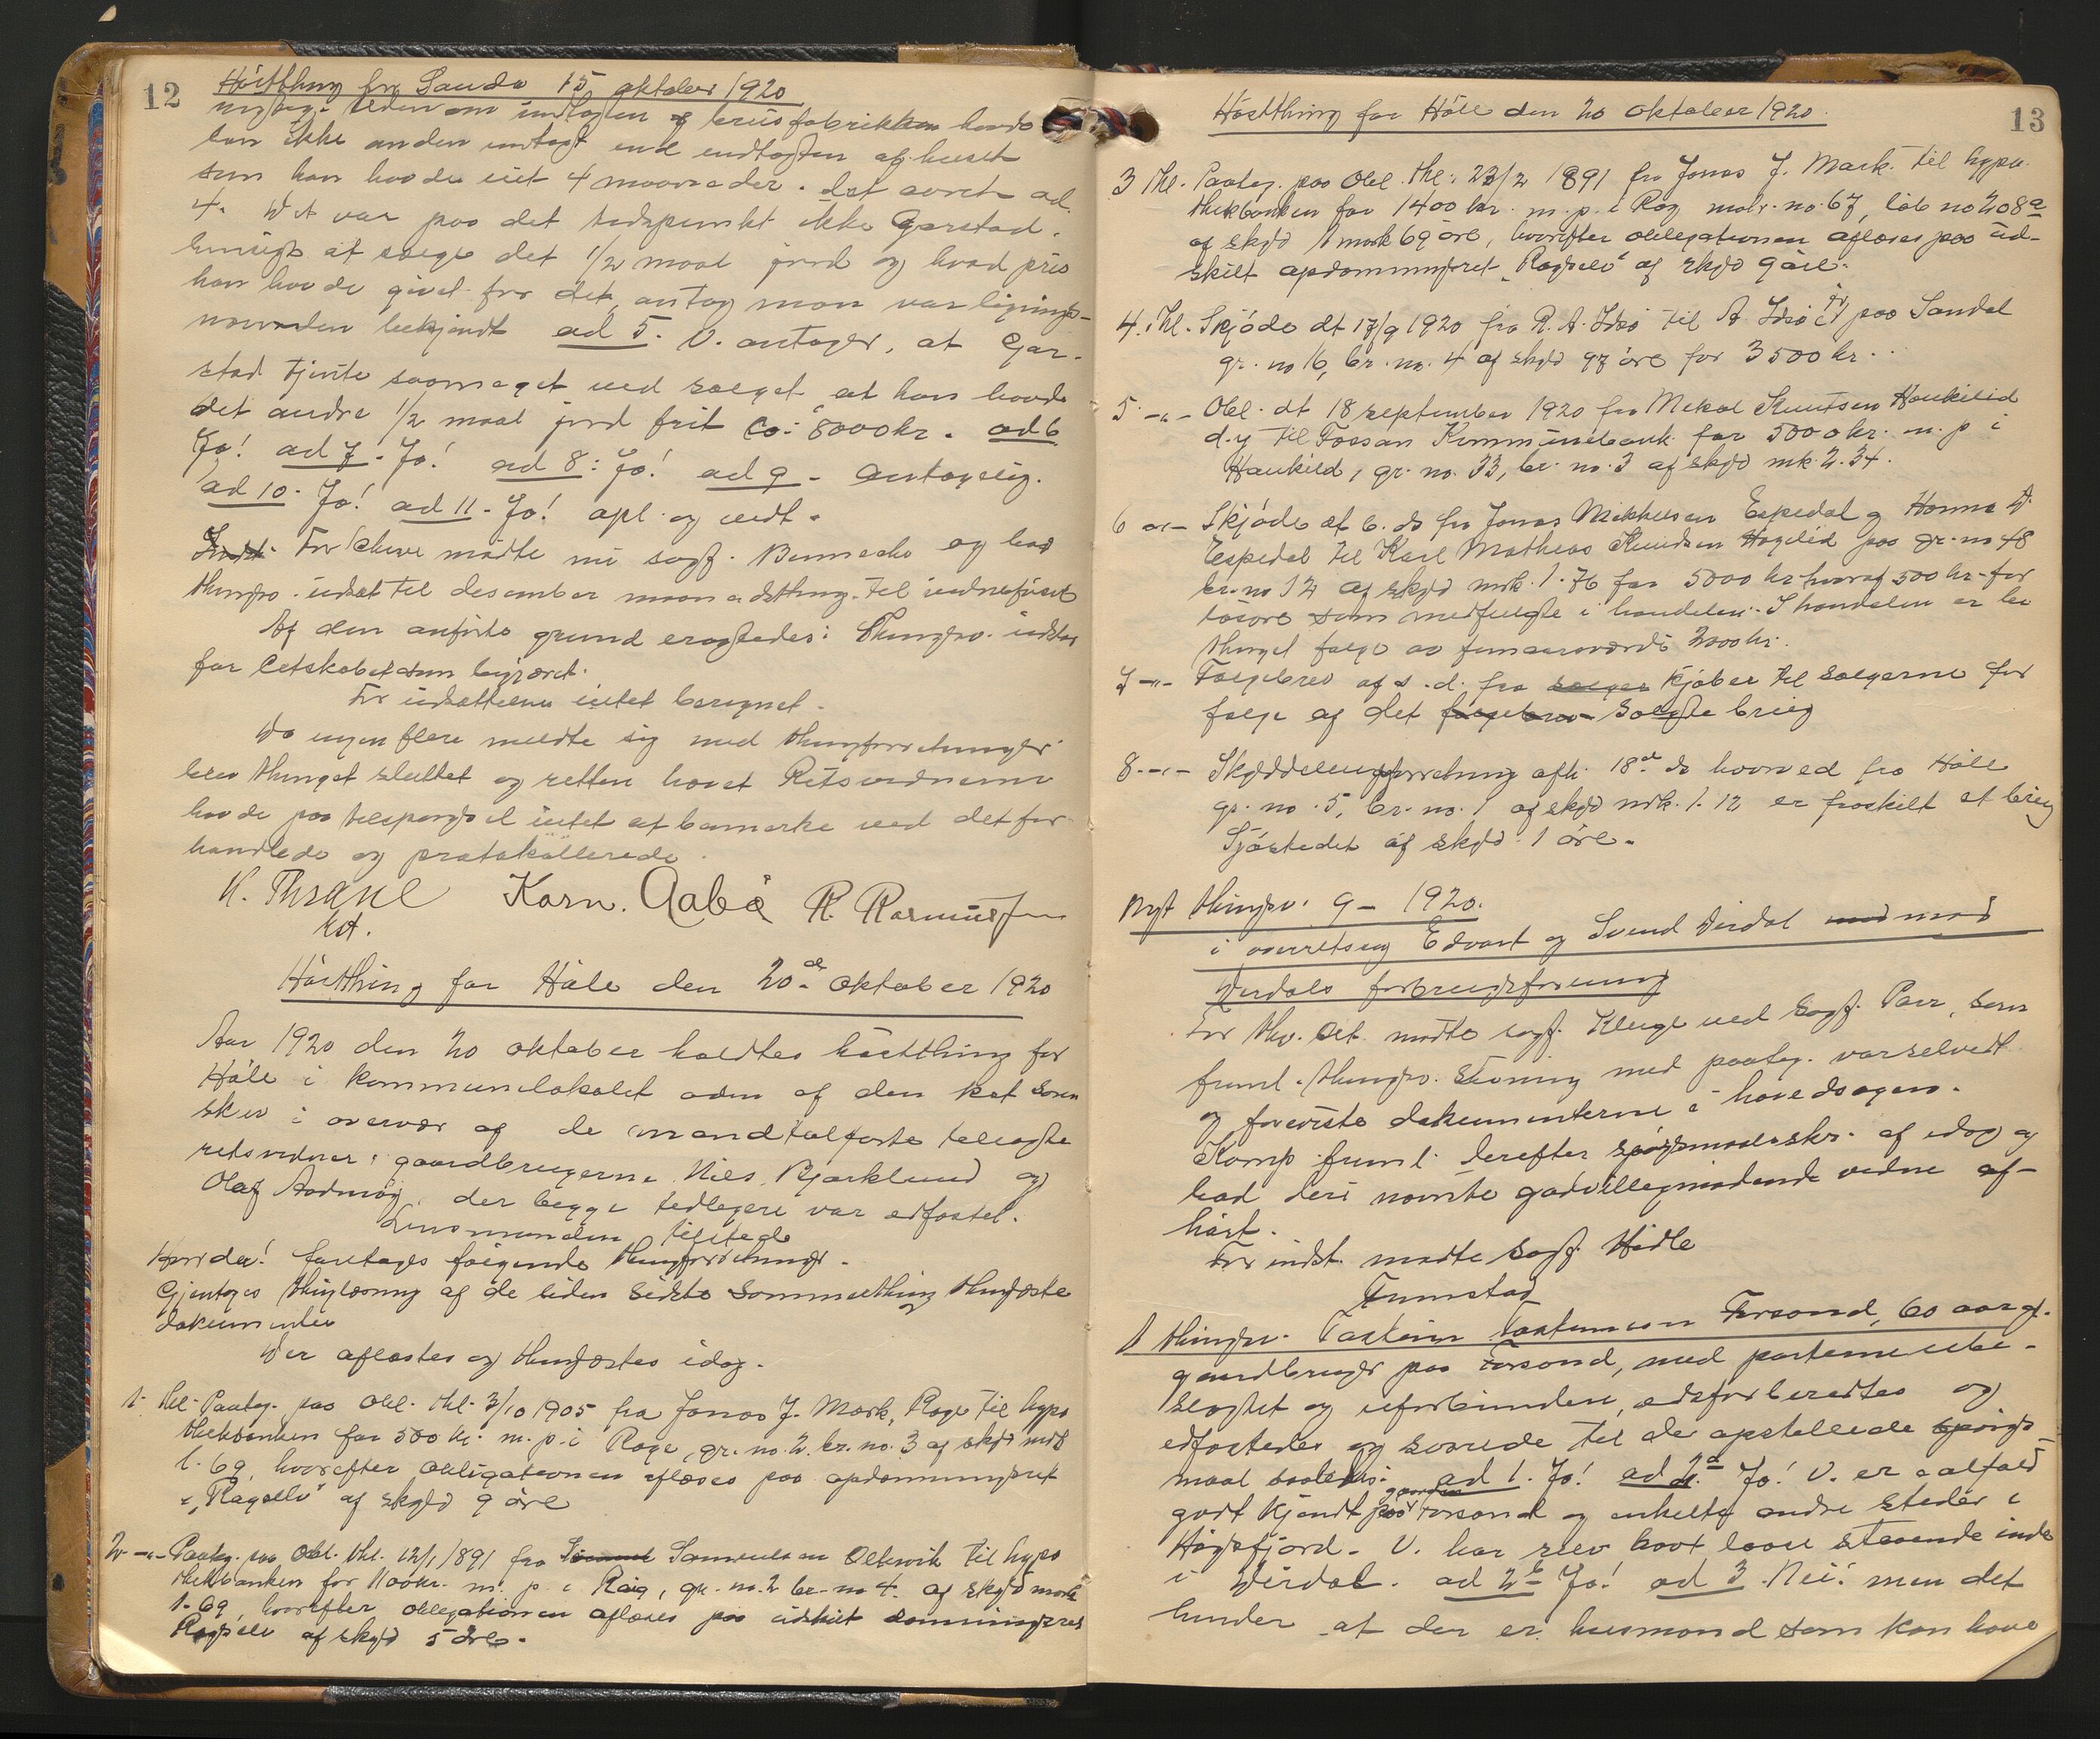 12
Høstthing for Sauda 15 oktober 1920
uden om indtægten af brusfabrikken havde
han ikke anden indtægt end indtægten af huset
som han havde eiet 4 maaneder. Det svart ad
4. Det var paa det tidspunkt ikke Garstad.
at sælge det 1/2 maal jord og hvad pris
han havde givet for det, antog man var lignings-
nævnden bekjendt ad 5. V. antager, at Gar-
stad tjente saameget ved salget at han havde
det andre 1/2 maal jord frit ca: 8000 kr. ad 6
Ja! ad 7. Ja! ad 8: Ja! ad 9 - Antagelig.
ad 10. Ja! ad 11 - Ja! opl. og vedt.
For mødte nu sagf. og bad
thingsv. udsat til desember maanedsthing til vidneførsel
Af den anførte grund eragtedes: Thingsv. udstar
for Cetskabet som begjæret.
For udsættelsen intet beregnet.
Da ingen flere meldte sig med thingforretninger
blev thinget sluttet og retten hævet Retsvidnerne
havde paa tilspørgsel intet at bemærke ved det for-
handlede og protokollerede.
K. Thrane Korn. Aabø R. Rasmussen
kst.
Høstthing for Høle den 20de oktober 1920
Aar 1920 den 20 oktober holdtes høstthing for
Høle i kommunelokalet adm af den kst soren
skriv i overvær af de mandtalførte tilsagte
retsvidner: gaardbrugerne Nils Bjørklund og
Olaf Aadnøy, der begge tidligere var edfæstet.
Lensmanden tilstede
Hvorda! foretages følgende thingforretninger.
Gjentages thinglæsning af de siden sidste sommerthing thinglæste
dokumenter
Der aflæstes og thinglæstes idag.
1. thl. Paateg. paa Obl. thl. 3/10 1905 fra Jonas J. Mark, Rage til hypo
thekbanken for 500 kr. m. p. i Rage, gr. no. 2. br. no. 3 af skyld mrk
1.69, hvorefter obligationen aflæses paa opdæmningsret
i "Ragselv" af skyld 9 øre
2 -"- Paateg. paa Obl. thl. 12/1 1891 fra Samuelsen Oltevik til hypo
thekbanken for 1100 kr. m. p. i Rag, gr. no. 2 br. no 4. af skyld mark
1.69, hvorefter obligationen aflæses paa udskilt dæmningsret
Ragselv af skyld 5 øre.
Høstthing for Høle den 20 oktober 1920.
13
3 thl. Paateg. paa Obl. thl. 23/2 1891 fra Jonas J. Mark til hypo
thekbanken for 1400 kr. m. p. i Rag matr. no. 67, løb no 208a
af skyld 1 mark 69 øre, hvorefter obligationen aflæses paa ud-
skilt opdæmningsret "Ragselv" af skyld 9 øre.
4. thl. Skjøde dt 17/9 1920 fra R. A. Idsø til A. Idsø paa Sandal
gr. no 16, br. no. 4 af skyld 97 øre for 3500 kr.
5 -"- Obl. dt 18 september 1920 fra Mikal Knutsen Haukelid
d. y til Fossan Kommunebank for 5000 kr. m. p i
Haukelid, gr. no. 33, br. no. 3 af skyld mk. 2.34.
6 -"- Skjøde dt 6. ds fra Jonas Mikkelsen Espedal og Hanna D.
Espedal til Karl Mathias Knudsen Hagelid paa gr. no 48
br. no 12 af skyld mrk. 1.76 for 5000 kr hvoraf 500 kr. for
løsøre som medfulgte i handelen. I handelen er be
thinget følge av femaarsværdi 2000 kr.
7 -"- Følgebrev af s. d. fra sælger Kjøber til sælgerne for
følge af det følgebrev solgte brug
8 -"- Skylddelingsforretning afh. 18de ds hvorved fra Høle
gr. no. 5, br. no. 1 af skyld mrk. 1.12 er fraskilt et brug
Sjøstedet af skyld 1 øre.
Nyt thingsv. 9 - 1920.
i overretssag Edvart og Svend Dirdal mod mod
Dirdals forbrugsforening
For thv. Cit. mødte sagf. Kluge ved sagf. Parr, som
freml. thingsv. stevning med paateg. varselvedt
og foreviste dokumenterne i hovedsagen.
Komp freml. derefter spørgsmaalsskr. af idag og
bad deri nævnte godvilligmødende vidne af-
hørt.
For indst. mødte sagf. Hidle
Fremstod
1 thingsv. Torstein Torstensen Forsand, 60 aar gl.
gaardbruger paa Forsand, med parterne ube-
slægtet og uforbunden, edsforberedtes og
edfæstedes og svarede til de opstillede spørgs-
maal saaledes: ad 1. Ja! ad 2a. Ja! V. er ialfald
godt kjendt paa gaarden Forsand og enkelte andre steder i
Høgsfjord. V. har selv havt laan staaende inde
i Dirdal. ad 2b Ja! ad 3. Nei! men det
hender at der er husmænd som kan have